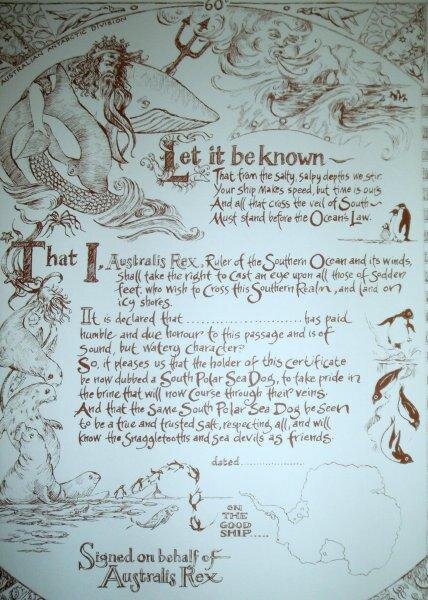 60°
AUSTRALIAN ANTARCTIC DIVISION
Let it be known ~
That from the salty, salpy depths we stir.
Your ship makes speed, but time is ours
And all that cross the veil of South ~
Must stand before the Ocean's Law.
That I, Australis Rex, Ruler of the Southern Ocean and its winds,
shall take the right to cast an eye upon all those of sodden
feet, who wish to cross this Southern Realm, and land on
icy shores.
It is declared that ........................ has paid
humble and due honour to this passage and is of
sound, but watery character.
So, it pleases us that the holder of this certificate
be now dubbed a South Polar Sea Dog, to take pride in
the brine that will now course through their veins.
And that the same South Polar Sea Dog be seen
to be a true and trusted salt, respecting all, and will
know the snaggletooths and sea devils as friends.
dated ..................
ON
THE
GOOD
SHIP.....
Signed on behalf of
Australis Rex